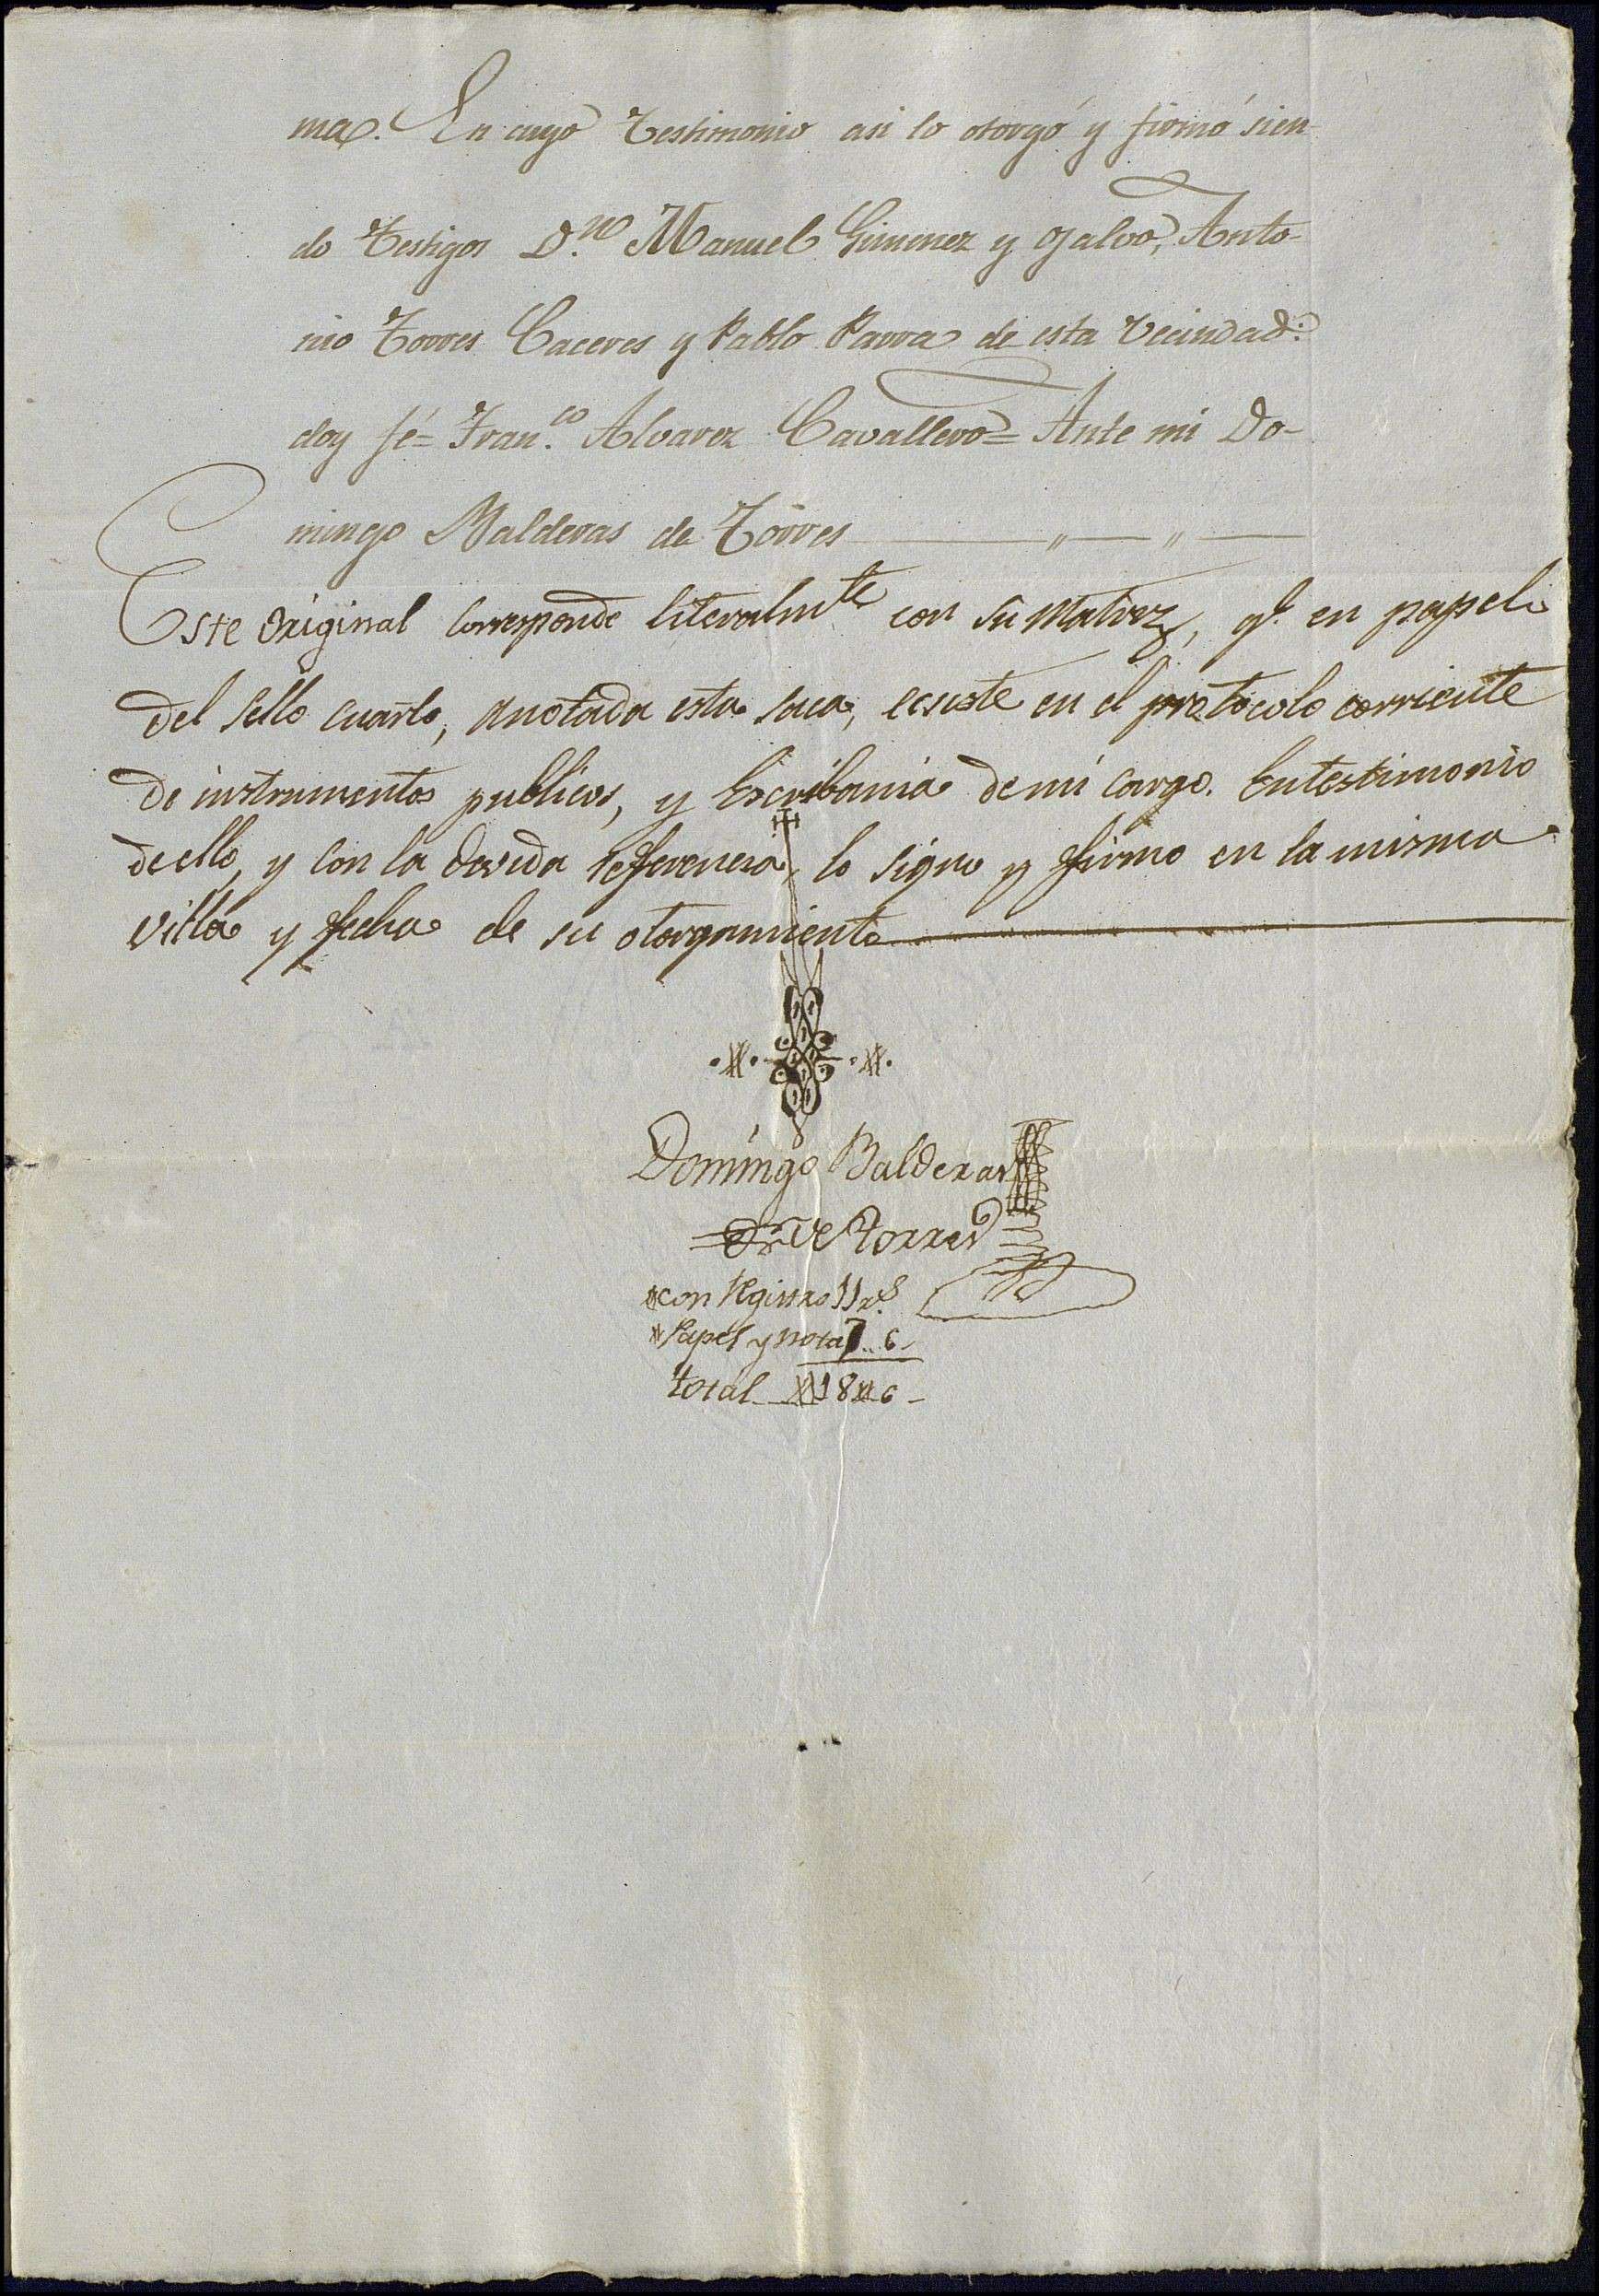 ma. En cuyo Testimonio asi lo otorgó y firmó sien
do Testigos D.n Manuel Gimenez y Galvo, Anto-
nio Torres Caceres y Pablo Parra de esta Vecindad:
doy fé= Fran.co Alvarez Cavallero= Ante mi Do-
mingo Balderas de Torres
Este original corresponde literalmte con su Matriz, q.e en papel
del sello cuarto, anotada esta saca, ecsiste en el protocolo corriente
de instrumentos publicos, y Escribania de mi cargo. En testimonio
de ello, y con la devida referencia, lo signo y firmo en la misma
villa y fecha de su otorgamiento
Domingo Balderas
de Torres
con Registro 11 r.s
Papel y nota 7.. 6
total 18 6